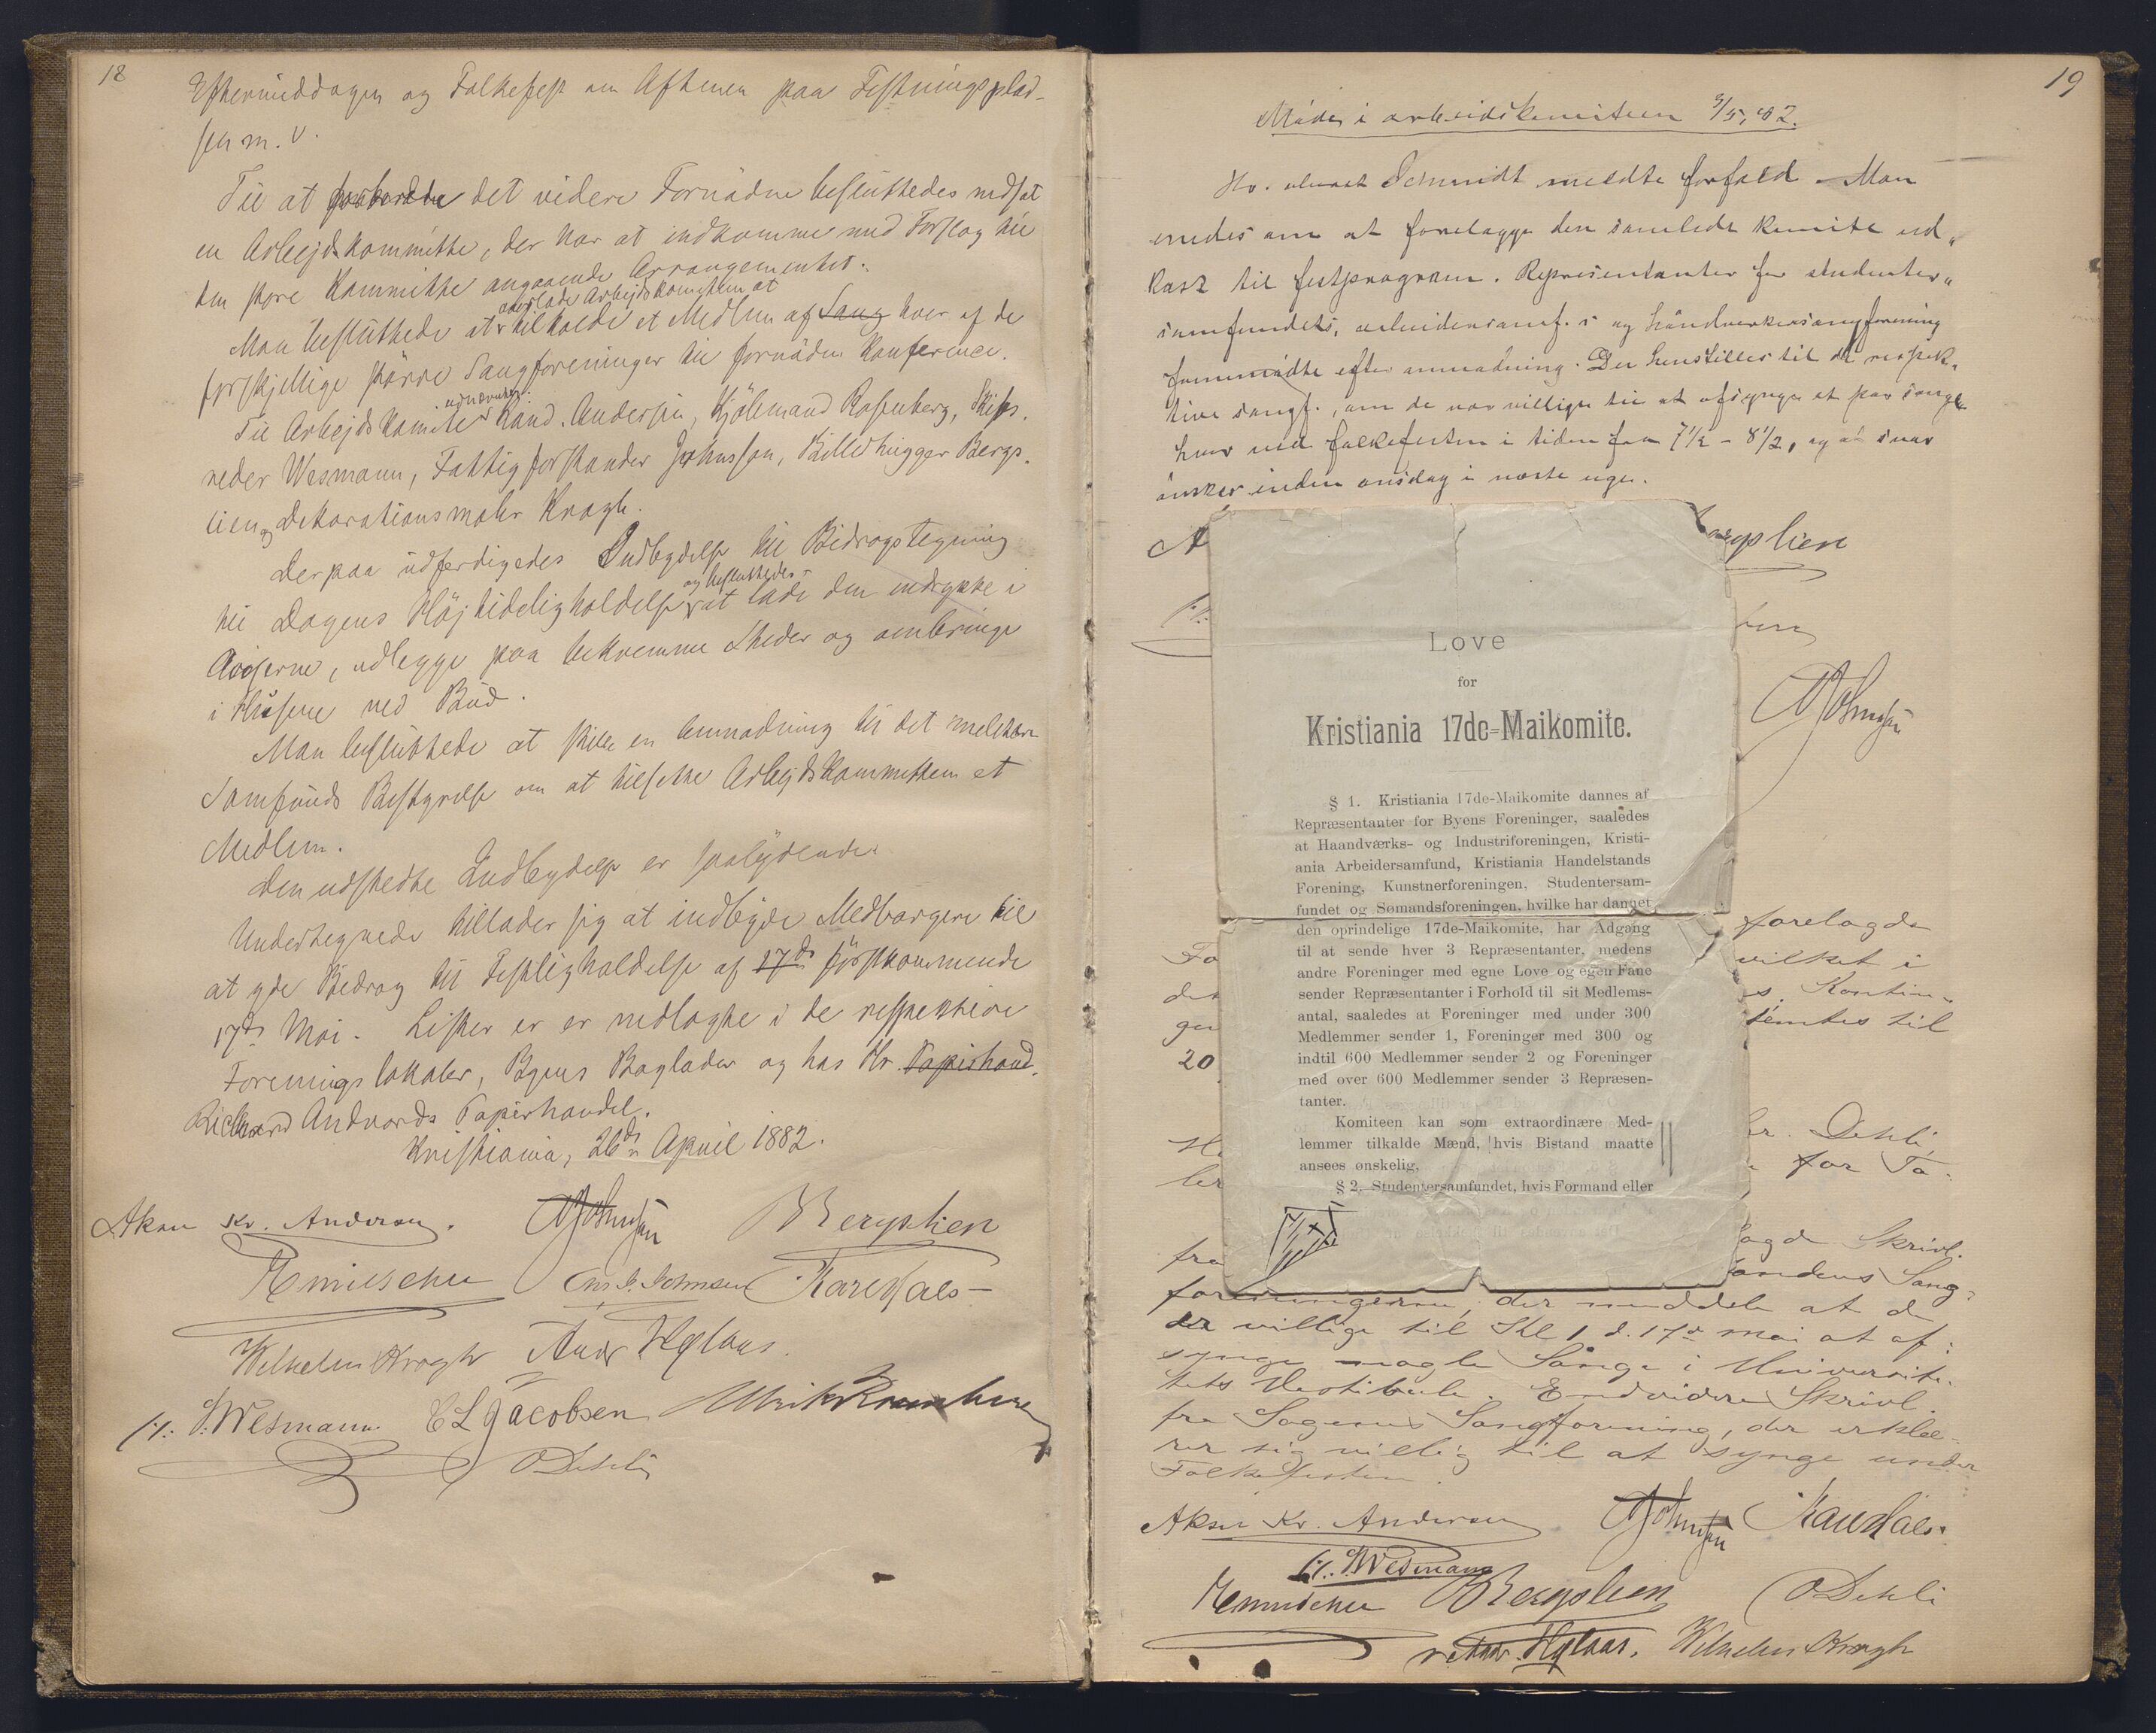 18
Eftermiddagen og Folkefest om Aftenen paa Festningsplad-
sen m. v.
Til at forberede det videre Fornødne besluttedes nedsat
en Arbejdskommitte, der har at indkomme med Forslag til
den store Kommitte angaaende Arrangementet.
overlade Arbejdskomiteen at
Man besluttede at tilkalde et Medlem af Sang hver af de
forskjellige større Sangforeninger til fornøden Konference.
udnævntes:
Til Arbejdskomite Kand. Andersen, Hjulmand Rosenberg, Skibs-
reder Wesmann, Fattigforstander Johnsson, Billedhugger Bergs-
lien og Dekorationsmaler Krogh.
Derpaa udferdigedes Indbydelse til Bidragstegning
og besluttedes
til Dagens Højtideligholdelse at lade den indrykke i
Aviserne, udlegge paa bekvemme Steder og ombringe
i Husene ved Bud.
Man besluttede at stille en Anmodning til det militære
Samfunds Bestyrelse om at tilsette Arbejdskommitteen et
Medlem.
Den udstedte Indbydelse er saalydende:
Undertegnede tillader sig at indbyde Medborgere til
at yde Bidrag til Festligholdelse af 17de førstkommende
17de Mai. Lister er er nedlagte i de respektive
Foreningslokaler, Byens Boglader og hos Hr. Papirhand.
Richard Andvords Papirhandel.
Kristiania, 26de April 1882.
Aksn Kr. Andersen. Johnsson B Bergslien
Chr. J. Johnsen Karl Hals
Wilhelm Krogh Andr Hglaas.
W. P. Wesmann C L Jacobsen Ulrik
O Dehli
19
Møde i arbeidskomiteen 3/5, 82.
Hr. Schmidt meldte forfald. Man
enedes om at forelægge den samlede komite ud-
kast til festprogram. Repræsentanter for studenter-
samfundets, arbeidersamf.s og håndverkersangforening
fremmødte efter anmodning. Der henstilles til de respek-
tive sangf., om de var villige til at afsynge et par sange
hver ved folkefesten i tiden fra 7½ - 8½, og at svar
ønskes inden onsdag i næste uge.
A
rgslien
Johnsson
Love
for
Kristiania 17de-Maikomite.
§ 1. Kristiania 17de-Maikomite dannes af
Repræsentanter for Byens Foreninger, saaledes
at Haandværks- og Industriforeningen, Kristi-
ania Arbeidersamfund, Kristiania Handelstands
Forening, Kunstnerforeningen, Studentersam-
fundet og Sømandsforeningen, hvilke har dannet
den oprindelige 17de-Maikomite, har Adgang
til at sende hver 3 Repræsentanter, medens
andre Foreninger med egne Love og egen Fane
sender Repræsentanter i Forhold til sit Medlems-
antal, saaledes at Foreninger med under 300
Medlemmer sender 1, Foreninger med 300 og
indtil 600 Medlemmer sender 2 og Foreninger
med over 600 Medlemmer sender 3 Repræsen-
tanter.
Komiteen kan som extraordinære Med-
lemmer tilkalde Mænd, hvis Bistand maatte
ansees ønskelig.
§ 2. Studentersamfundet, hvis Formand eller
Fo forelagde
det vilket i
gen s. Kontin-
20 temtes til
H r. Dehli,
ler for Ta-
agde Skrivl.
fra andens Sang-
foreningerne, der meddele at de
er villige til Kl 1 d. 17de mai at af-
synge nogle Sange i Universite-
tets Vestibule. Endvidere Skrivl.
fra Sagenes Sangforening, der erklæ-
rer sig villig til at synge under
Folkefesten.
Aksn Kr. Andersen Johnsson Karl Hals.
W. P. Wesmann
B Bergslien O Dehli
Andr. Hglaas. Wilhelm Krogh